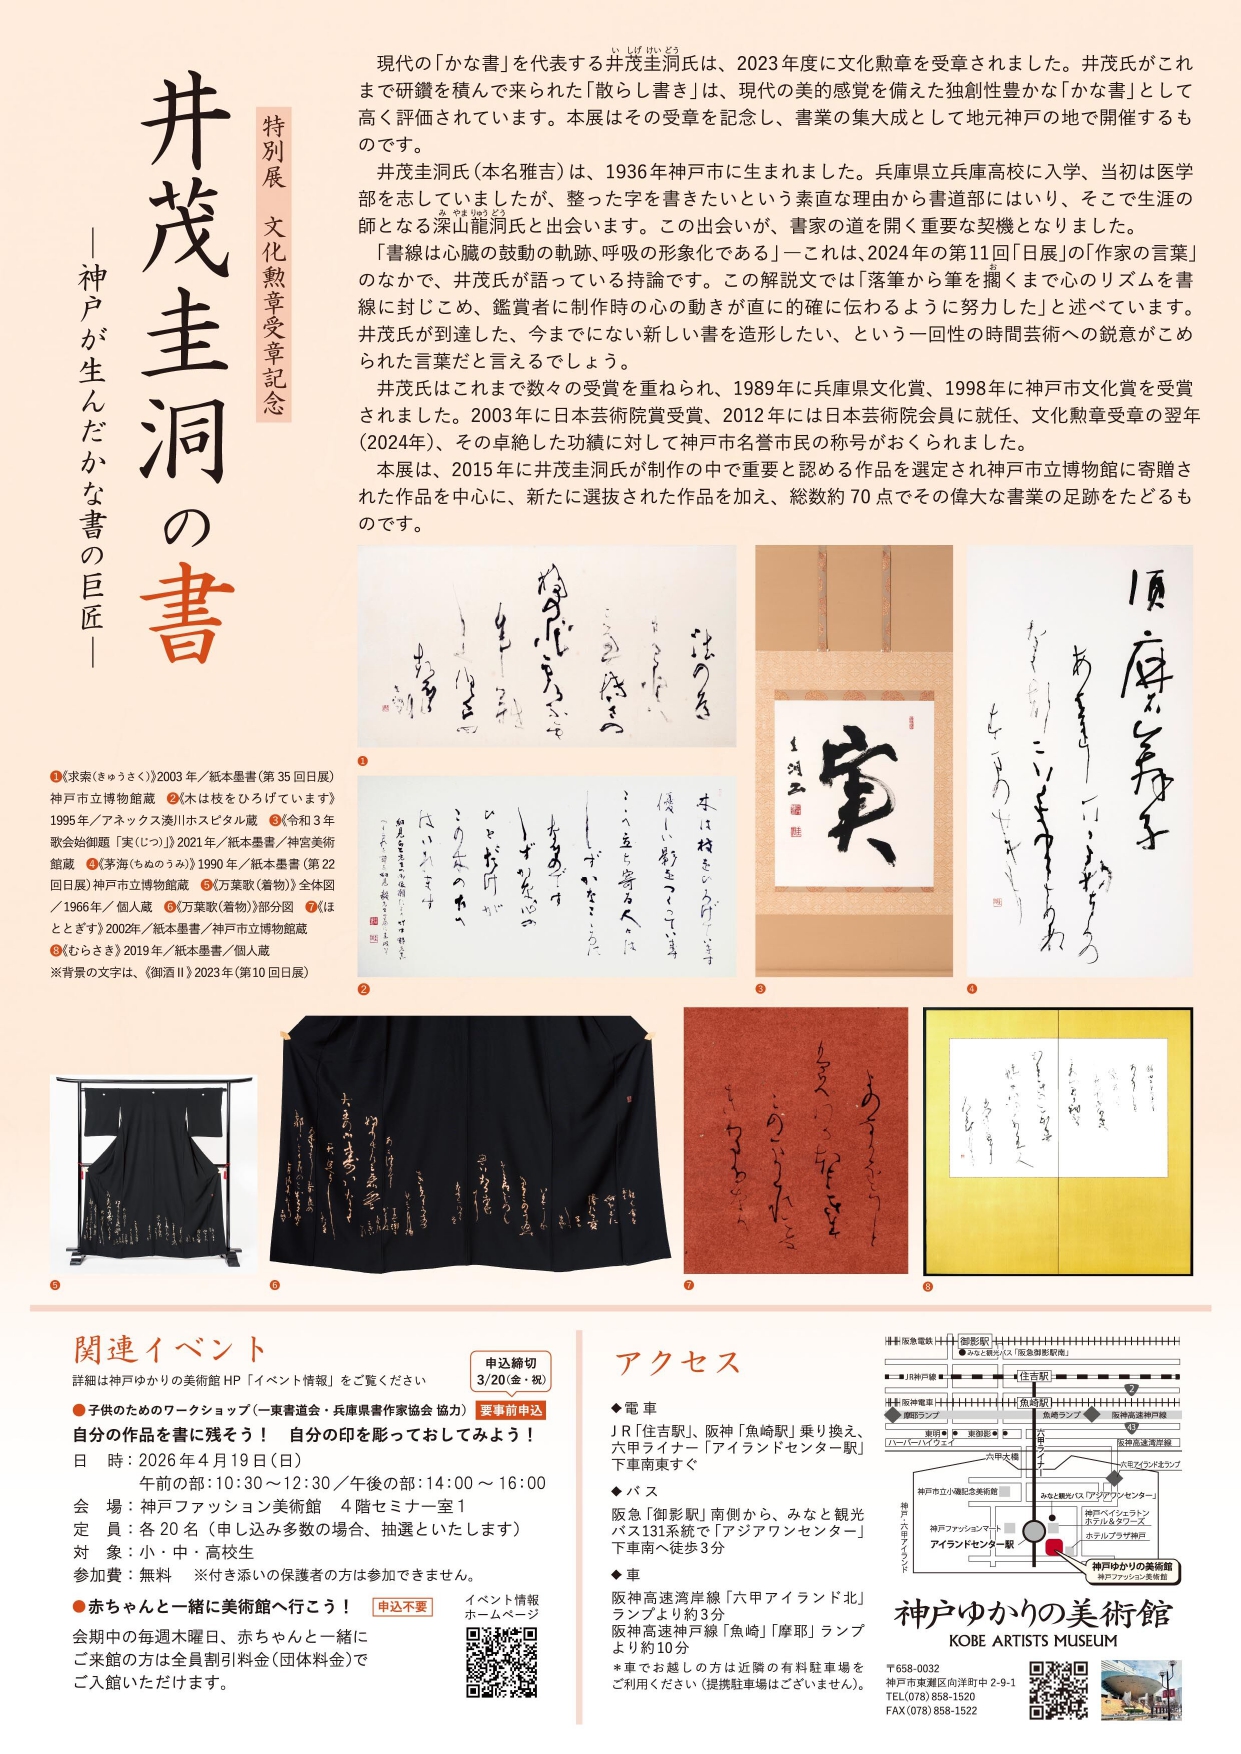 特別展 文化勲章受章記念
井茂圭洞の書
―神戸が生んだかな書の巨匠―
現代の「かな書」を代表する井茂圭洞氏は、2023年度に文化勲章を受章されました。井茂氏がこれ
まで研鑽を積んで来られた「散らし書き」は、現代の美的感覚を備えた独創性豊かな「かな書」として
高く評価されています。本展はその受章を記念し、書業の集大成として地元神戸の地で開催するも
のです。
井茂圭洞氏（本名雅吉）は、1936年神戸市に生まれました。兵庫県立兵庫高校に入学、当初は医学
部を志していましたが、整った字を書きたいという素直な理由から書道部にはいり、そこで生涯の
師となる深山龍洞氏と出会います。この出会いが、書家の道を開く重要な契機となりました。
「書線は心臓の鼓動の軌跡、呼吸の形象化である」―これは、2024年の第11回「日展」の「作家の言葉」
のなかで、井茂氏が語っている持論です。この解説文では「落筆から筆を擱くまで心のリズムを書
線に封じこめ、鑑賞者に制作時の心の動きが直に的確に伝わるように努力した」と述べています。
井茂氏が到達した、今までにない新しい書を造形したい、という一回性の時間芸術への鋭意がこめ
られた言葉だと言えるでしょう。
井茂氏はこれまで数々の受賞を重ねられ、1989年に兵庫県文化賞、1998年に神戸市文化賞を受賞
されました。2003年に日本芸術院賞受賞、2012年には日本芸術院会員に就任、文化勲章受章の翌年
（2024年）、その卓絶した功績に対して神戸市名誉市民の称号がおくられました。
本展は、2015年に井茂圭洞氏が制作の中で重要と認める作品を選定され神戸市立博物館に寄贈さ
れた作品を中心に、新たに選抜された作品を加え、総数約70点でその偉大な書業の足跡をたどるも
のです。
❶《求索（きゅうさく）》2003年／紙本墨書（第35回日展）
神戸市立博物館蔵 ❷《木は枝をひろげています》
1995年／アネックス湊川ホスピタル蔵 ❸《令和3年
歌会始御題「実（じつ）」》2021年／紙本墨書／神宮美術
館蔵 ❹《茅海（ちぬのうみ）》1990年／紙本墨書（第22
回日展）神戸市立博物館蔵 ❺《万葉歌（着物）》全体図
／1966年／個人蔵 ❻《万葉歌（着物）》部分図 ❼《ほ
ととぎす》2002年／紙本墨書／神戸市立博物館蔵
❽《むらさき》2019年／紙本墨書／個人蔵
※背景の文字は、《御酒Ⅱ》2023年（第10回日展）
実
❶
❷
❸
❹
❺
❻
❼
❽
関連イベント
詳細は神戸ゆかりの美術館HP「イベント情報」をご覧ください
申込締切
3/20（金・祝）
●子供のためのワークショップ（一東書道会・兵庫県書作家協会 協力） 要事前申込
自分の作品を書に残そう！ 自分の印を彫っておしてみよう！
日 時：2026年4月19日（日）
午前の部：10:30～12:30／午後の部：14:00～16:00
会 場：神戸ファッション美術館 4階セミナー室1
定 員：各20名（申し込み多数の場合、抽選といたします）
対 象：小・中・高校生
参加費：無料 ※付き添いの保護者の方は参加できません。
●赤ちゃんと一緒に美術館へ行こう！ 申込不要
会期中の毎週木曜日、赤ちゃんと一緒に
ご来館の方は全員割引料金（団体料金）で
ご入館いただけます。
イベント情報
ホームページ
アクセス
◆電車
JR「住吉駅」、阪神「魚崎駅」乗り換え、
六甲ライナー「アイランドセンター駅」
下車南東すぐ
◆バス
阪急「御影駅」南側から、みなと観光
バス131系統で「アジアワンセンター」
下車南へ徒歩3分
◆車
阪神高速湾岸線「六甲アイランド北」
ランプより約3分
阪神高速神戸線「魚崎」「摩耶」ランプ
より約10分
＊車でお越しの方は近隣の有料駐車場を
ご利用ください（提携駐車場はございません）。
阪急電鉄
御影駅
●みなと観光バス「阪急御影駅南」
JR神戸線
住吉駅
2
阪神電車
魚崎駅
摩耶ランプ
魚崎ランプ
阪神高速神戸線
東明
東御影
43
ハーバーハイウェイ
阪神高速湾岸線
六甲ライナー
六甲大橋
六甲アイランド北ランプ
神戸市立小磯記念美術館
みなと観光バス「アジアワンセンター」
神戸・六甲アイランド
神戸ファッションマート
神戸ベイシェラトン
ホテル&タワーズ
ホテルプラザ神戸
アイランドセンター駅
神戸ゆかりの美術館
神戸ファッション美術館
神戸ゆかりの美術館
KOBE ARTISTS MUSEUM
〒658-0032
神戸市東灘区向洋町中2-9-1
TEL(078)858-1520
FAX(078)858-1522